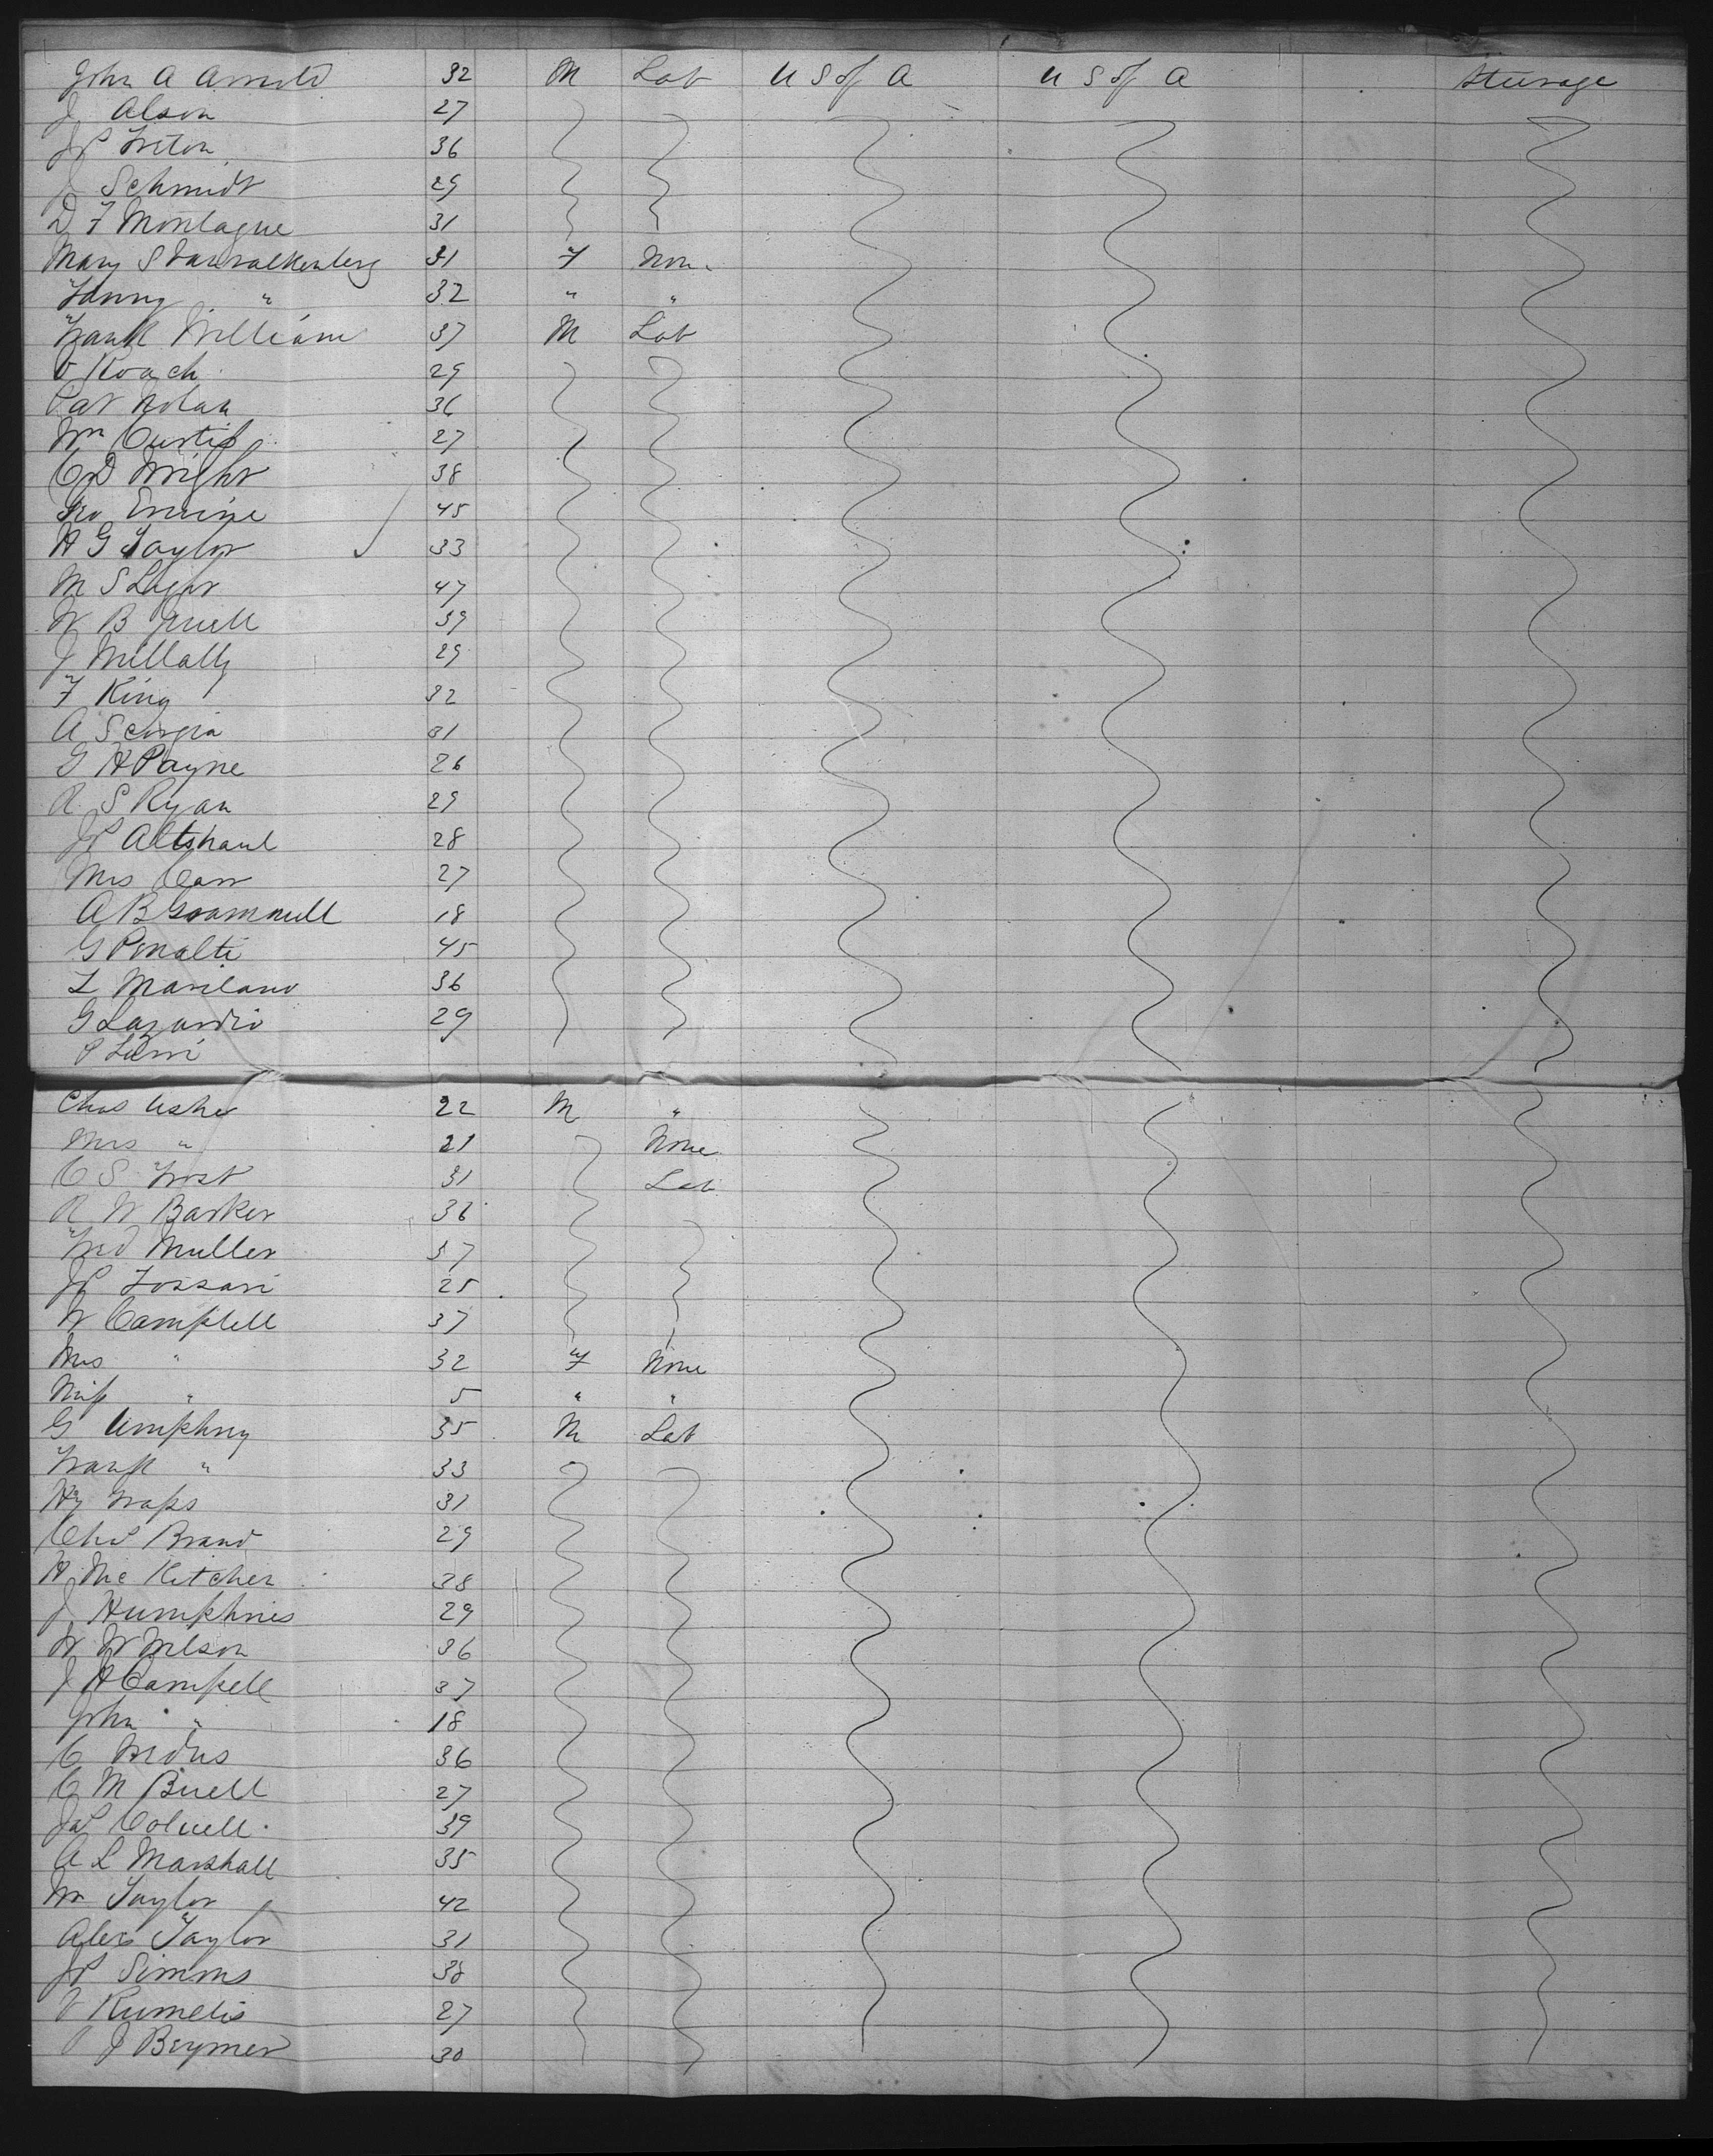 John A Arnold 32 M Lab U S of A U S of A Steerage
J Alson 27
JP 36
J Schmidt 29
D F Montague 31
Mary S Vanvalkenberg 31 F None
Fanny " 32 " "
Frank William 37 M Lab
V Roach 29
Pat Nolan 36
Wm Curtis 27
C D Wright 38
Geo 45
H G Taylor 33
M S 47
W B 39
J 29
F King 32
A 31
G H Payne 26
R S Ryan 29
JP Altshaul 28
Mrs Carr 27
A B Grammell 18
G 45
L 36
G Lazardio 29
P
Chas Usher 22 M "
Mrs " 21 None
C S Frost 31 Lab
R W Barker 36
Fred Muller 37
JP Fossari 25
W Campbell 37
Mrs " 32 F None
Miss " 5 " "
G Umphrey 35 M Lab
Frank " 33
Hy 31
Chas Brand 29
H Mc Kitcher 38
J Humphries 29
W W Nelson 36
J H Campell 37
John " 18
C 36
C M Buell 27
Jas 39
A L Marshall 35
Wm Taylor 42
Alex Taylor 31
JP Simms 38
V Rumelis 27
P J Beymer 30